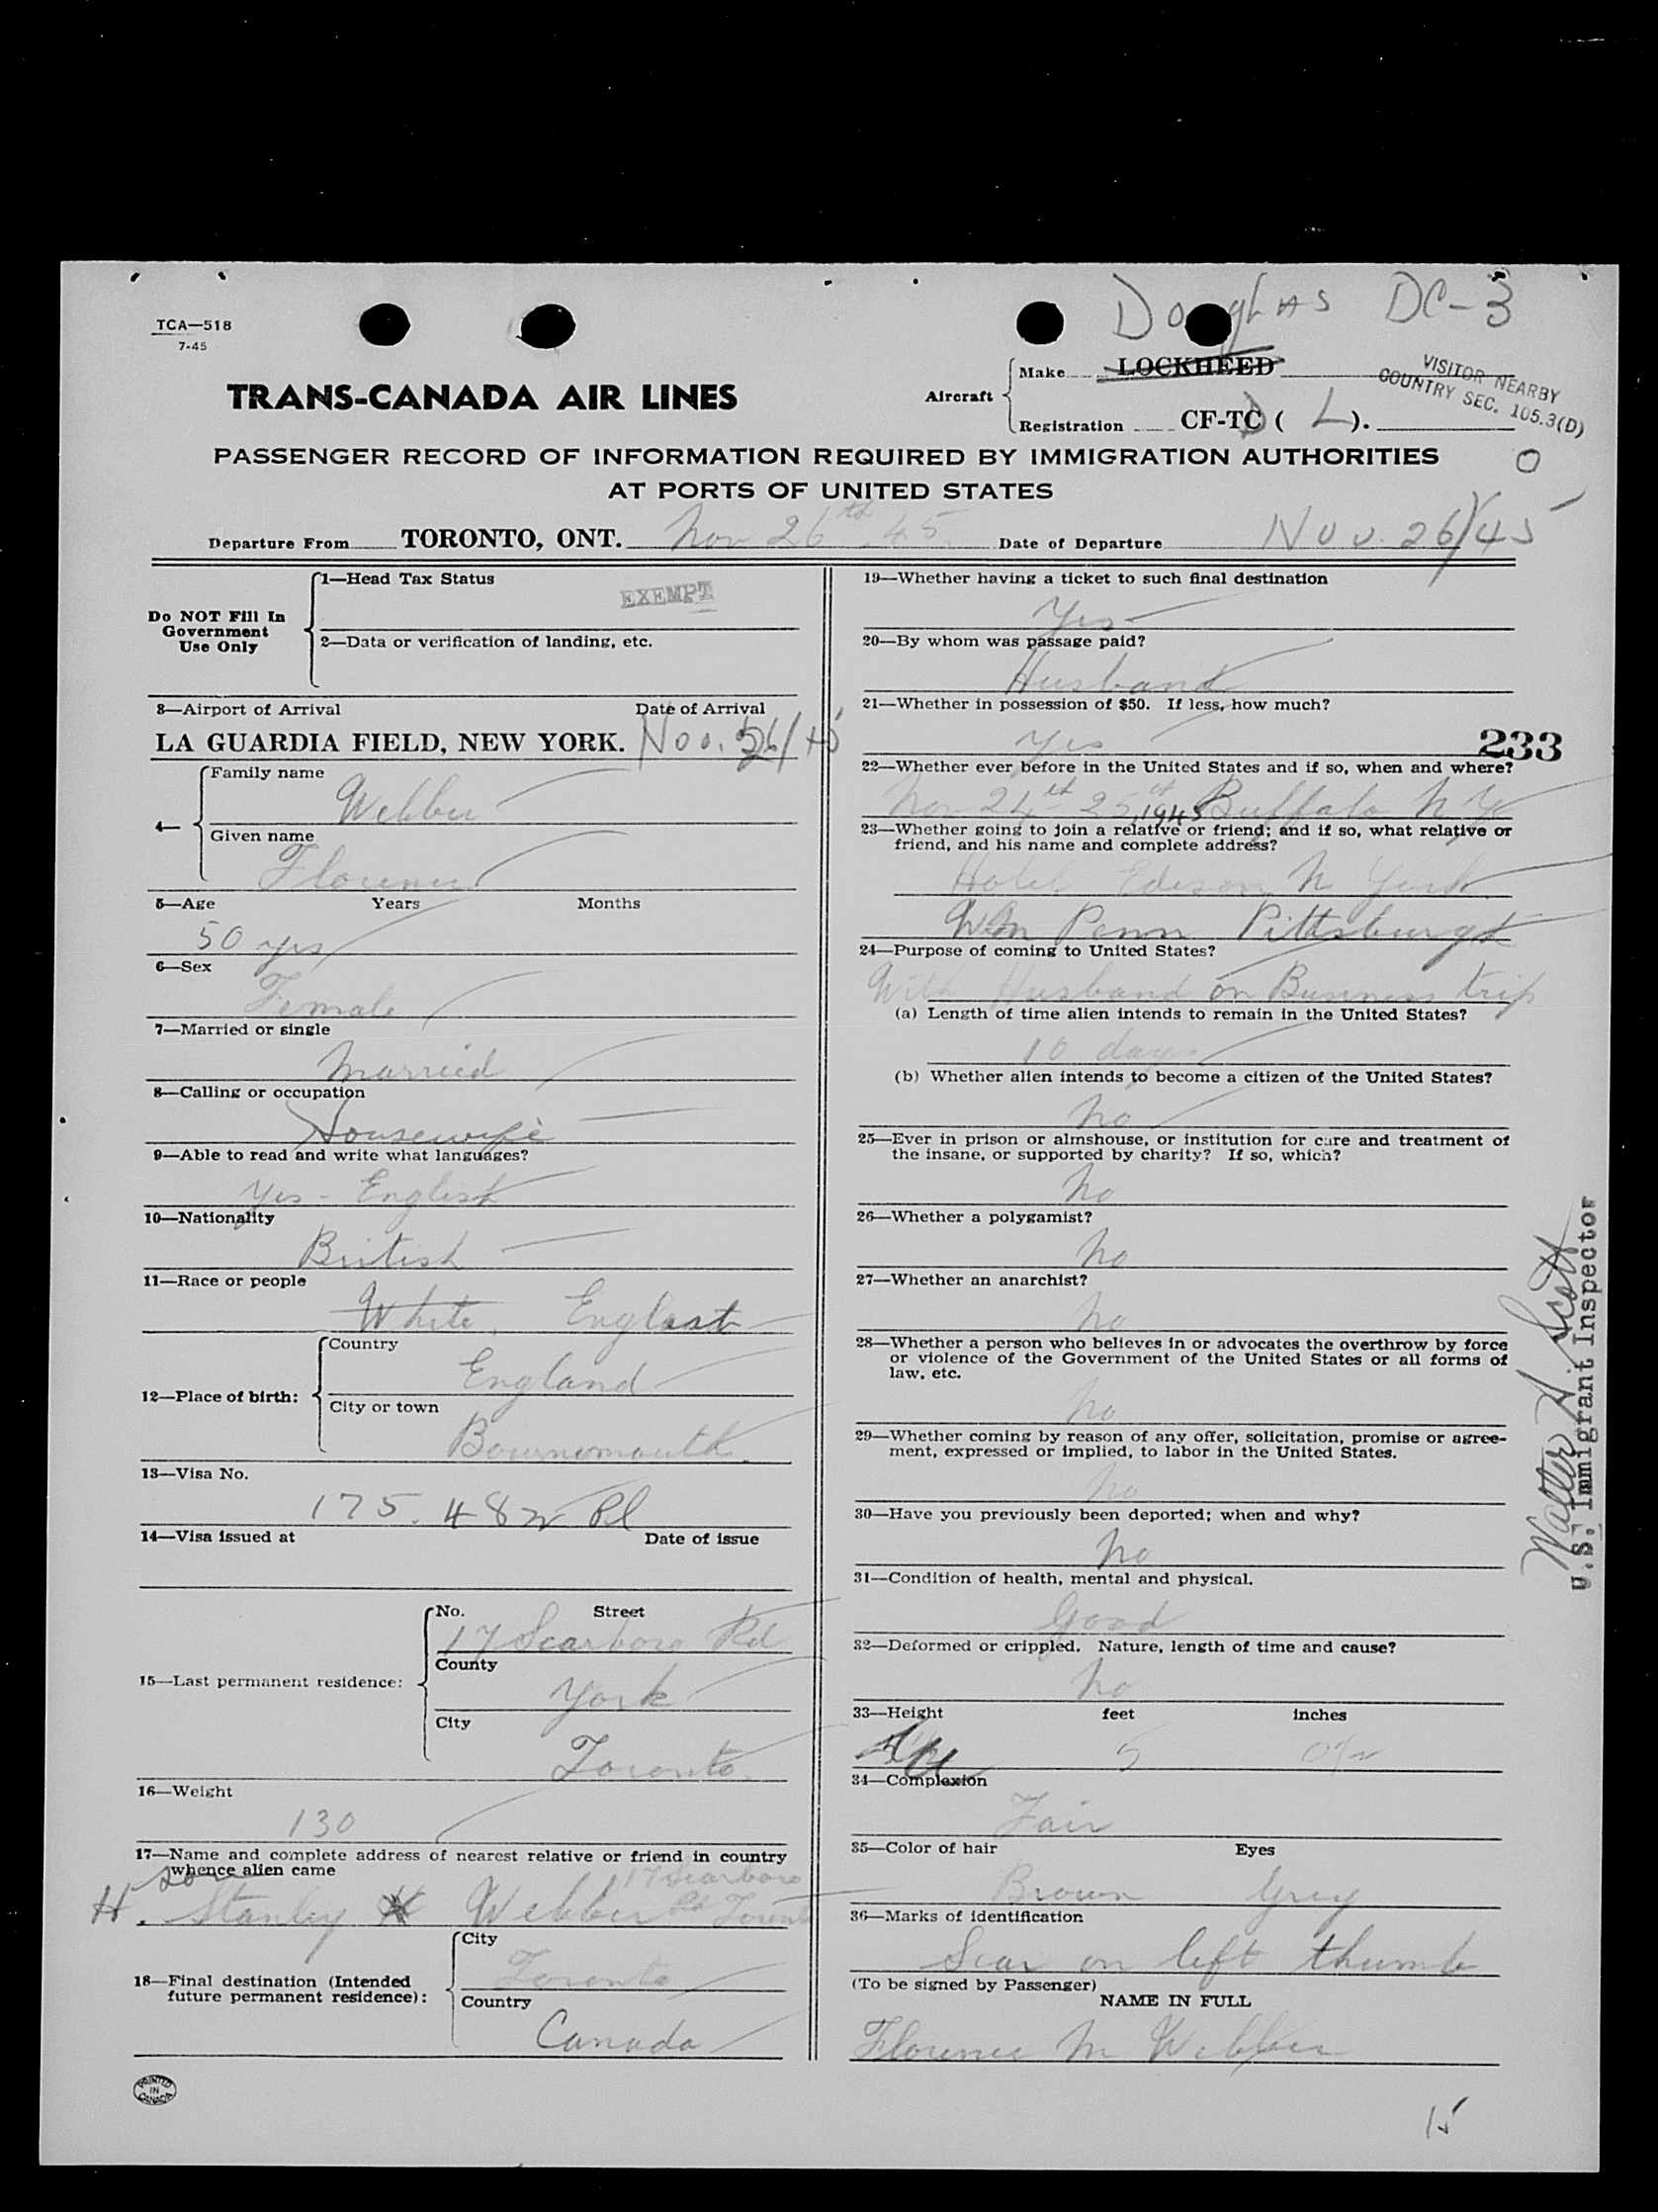 TCA—518
7-45
Douglas DC-3
TRANS-CANADA AIR LINES
Aircraft
Make LOCKHEED
Registration CF-TC D ( L ).
VISITOR NEARBY
COUNTRY SEC. 105.3(D)
PASSENGER RECORD OF INFORMATION REQUIRED BY IMMIGRATION AUTHORITIES
AT PORTS OF UNITED STATES
O
Departure From TORONTO, ONT. Nov 26th 45 Date of Departure Nov. 26/45
Do NOT Fill In
Government
Use Only
1—Head Tax Status
EXEMPT
2—Data or verification of landing, etc.
3—Airport of Arrival Date of Arrival
LA GUARDIA FIELD, NEW YORK. Nov. 26/45
4—
Family name
Webber
Given name
Florence
5—Age Years Months
50 yrs
6—Sex
Female
7—Married or single
Married
8—Calling or occupation
Housewife
9—Able to read and write what languages?
Yes - English
10—Nationality
British
11—Race or people
White English
12—Place of birth:
Country
England
City or town
Bournemouth
13—Visa No.
175.482
14—Visa issued at Date of issue
15—Last permanent residence:
No. Street
17 Scarboro Rd
County
York
City
Toronto
16—Weight
130
17—Name and complete address of nearest relative or friend in country
whence alien came
son
17 Scarboro
H. Stanley Webber Rd Toronto
18—Final destination (Intended
future permanent residence):
City
Toronto
Country
Canada
PRINTED
IN
CANADA
19—Whether having a ticket to such final destination
Yes
20—By whom was passage paid?
Husband
21—Whether in possession of $50. If less, how much?
Yes
233
22—Whether ever before in the United States and if so, when and where?
Nov 24th 25th 1945 Buffalo N Y
23—Whether going to join a relative or friend; and if so, what relative or
friend, and his name and complete address?
Hotel Edison N York
Wm Penn Pittsburgh
24—Purpose of coming to United States?
With Husband on Business trip
(a) Length of time alien intends to remain in the United States?
10 days
(b) Whether alien intends to become a citizen of the United States?
No
25—Ever in prison or almshouse, or institution for care and treatment of
the insane, or supported by charity? If so, which?
No
26—Whether a polygamist?
No
27—Whether an anarchist?
No
28—Whether a person who believes in or advocates the overthrow by force
or violence of the Government of the United States or all forms of
law, etc.
No
29—Whether coming by reason of any offer, solicitation, promise or agree-
ment, expressed or implied, to labor in the United States.
No
30—Have you previously been deported; when and why?
No
31—Condition of health, mental and physical.
Good
32—Deformed or crippled. Nature, length of time and cause?
No
33—Height feet inches
5
34—Complexion
Fair
35—Color of hair Eyes
Brown Grey
36—Marks of identification
Scar on left thumb
(To be signed by Passenger)
NAME IN FULL
Florence M Webber
Walter A Scott
U.S. Immigrant Inspector
15